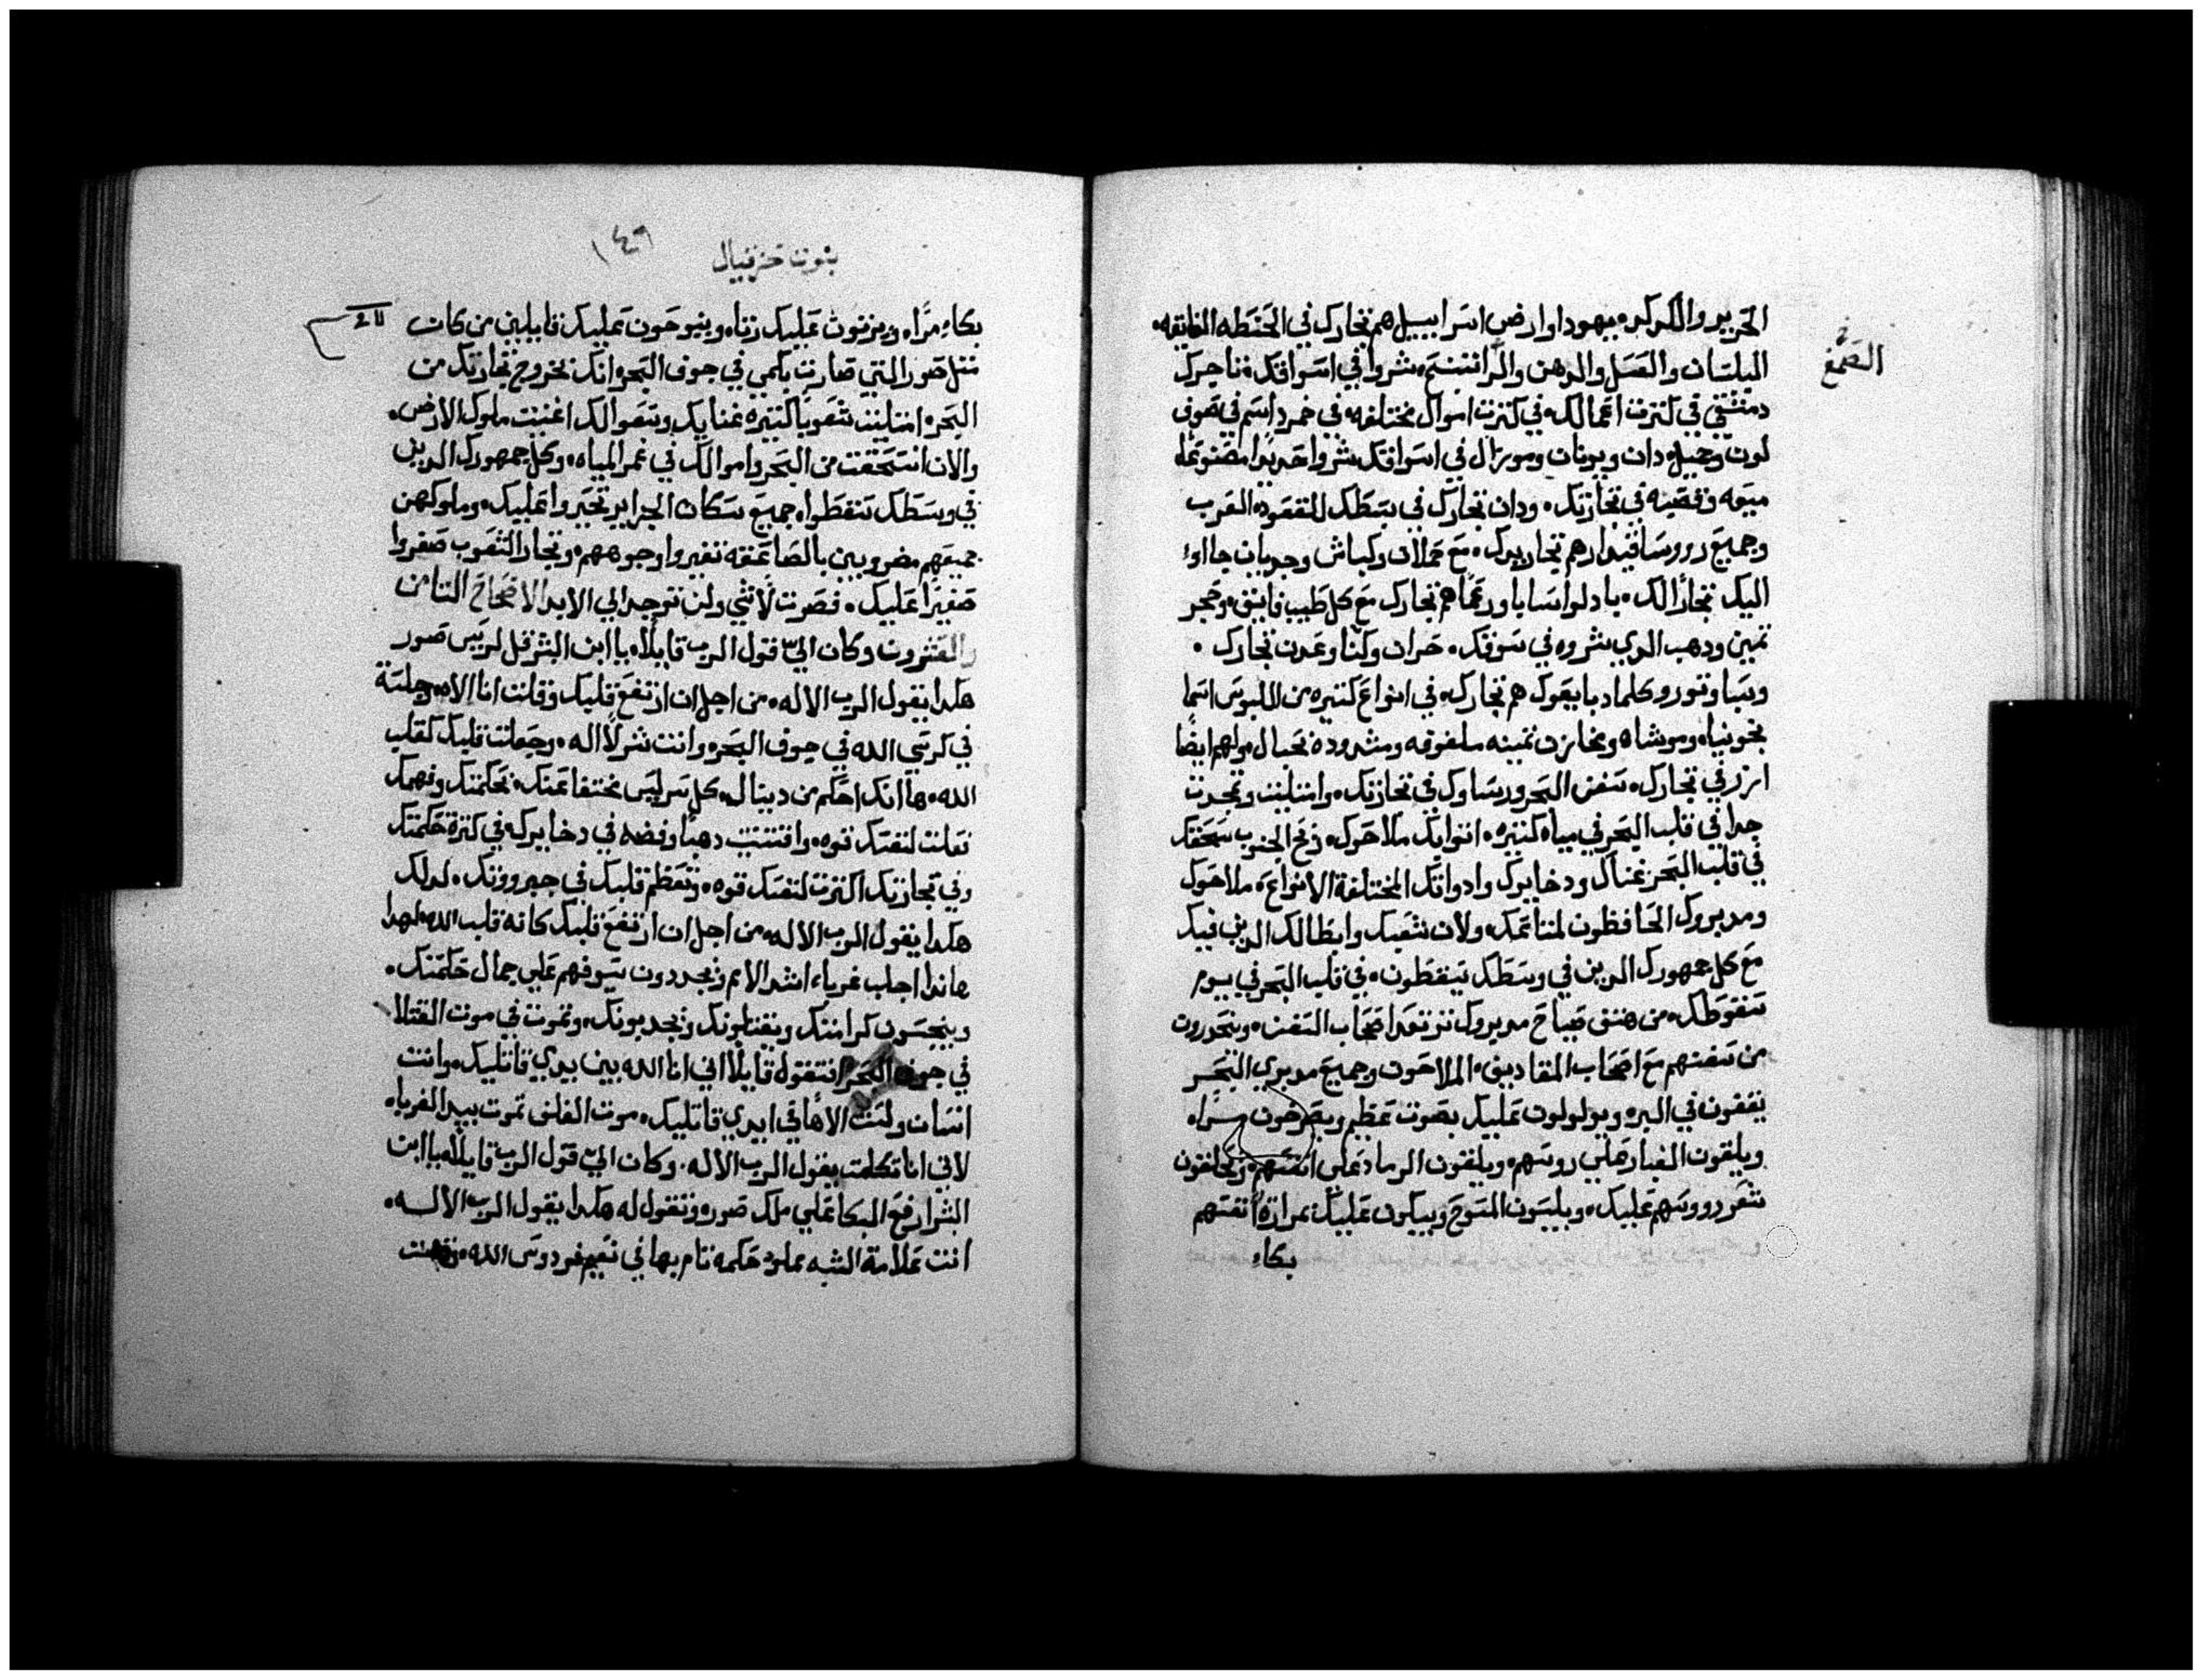 الحرير والكركر، يهودا وارض اسراييل هم تجارك في الحنطه الفايقه،
البلسان والعسل والدهن والراتنينج، شروا في اسواقك، تاجرك
الصمغ
دمشقي في كثرت اعمالك، في كثرت اموال مختلفه، في خمر داسم في صوف
لون وجيل، دان ويونان وموزال في اسواقك شروا حديدا مصنوعا،
ميعه وقصبه في تجارتك، ودان تجارك في بسطك للقعود، العرب
وجميع رووسا قيدار هم تجار يدك، مع حملان وكباش وجديان جااوا
اليك تجار لك، بادلوا سابا ورعما هم تجارك مع كل طيب فايق، وحجر
ثمين ودهب الدي شروه في سوقك، حران وكنا وعدن تجارك،
وسبا واتور وكلماد بايعوك هم تجارك، في انواع كثيره من الملبوس اسما
نجونيا، وموشاه ومخازن ثمينه ملفوفه ومشدوده بحبال، ولهم ايضا
ارز في تجارك، سفن البحر ورساوك في تجارتك، وامتليت وتمجدت
جدا في قلب البحر في مياه كثيره، اتوا بك ملاحوك، ريح الجنوب سحقك
في قلب البحر غناك ودخايرك وادواتك المختلفة الانواع، ملاحوك
ومدبروك الحافظون لمتاعك، ولات شعبك وابطالك الدين فيك
مع كل جمهورك الدين في وسطك يسقطون، في قلب البحر في يوم
سقوطك، من هتف صياح مدبروك ترتعد اصحاب السفن، وينحدرون
من سفنهم مع اصحاب المقاديف، الملاحون وجميع مدبري البحر
يقفون في البر، ويولولون عليك بصوت عظيم ويصرخون مرا،
ويلقون الغبار علي روسهم، ويلقون الرماد علي انفسهم، ويحلقون
شعر رووسهم عليك، ويلبسون المسوح ويبكون عليك بمرارة انفسهم
بكاء
نبوت حزقيال
١٤٩
بكاء مرا، ويرثون عليك رثاه وينوحون عليك قايلين من كان
مثل صور التي صارت بكمي في جوف البحر، انك بخروج تجارتك من
البحر، امتليت شعوبا كثيره، غنايك وشعوالك اغنيت ملوك الارض،
والان انسحقت من البحر واموالك في غمر المياه، وكل جمهورك الدين
في وسطك سقطوا، جميع سكان الجزاير تحيروا عليك، وملوكهن
جميعهم مضروبين بالصاعقه تغيروا وجوههم، وتجار الشعوب صفروا
صفيرا عليك، فصرت لاشي ولن توجد الي الابد الاصحاح الثامن
والعشرون وكان الي قول الرب قايلا، يا ابن البشر قل لرييس صور
هكدا يقول الرب الاله، من اجل ان ارتفع قلبك وقلت انا الاه، جلست
في كرسي الله في جوف البحر، وانت بشر لا اله، وجعلت قلبك كقلب
الله، ها انك احكم من دينال، كل سر ليس مختفا عنك، بحكمتك وفهمك
فعلت لنفسك قوه، واقتنيت دهبا وفضه في دخايرك، في كثرة حكمتك
وفي تجارتك اكثرت لنفسك قوه، وتعظم قلبك في جبرووتك، لدلك
هكدا يقول الرب الاله، من اجل ان ارتفع قلبك كانه قلب الله، لهدا
هاندا اجلب غرباء اشد الامم ويجردون سيوفهم علي جمال حكمتك،
وينجسون كرامتك ويقتلونك ويجدبونك، وتموت في موت القتلا
في جوف البحر، انتقول قايلا اني انا الله بين يدي قاتليك، وانت
انسان ولست الاها في ايدي قاتليك، موت الغلف تموت بيد الغربا،
لاني انا تكلمت يقول الرب الاله، وكان الي قول الرب قايلا، يا ابن
البشر ارفع البكا علي ملك صور، وتقول له هكدا يقول الرب الاله،
انت علامة الشبه مملو حكمه تام بها، في نعيم فردوس الله،